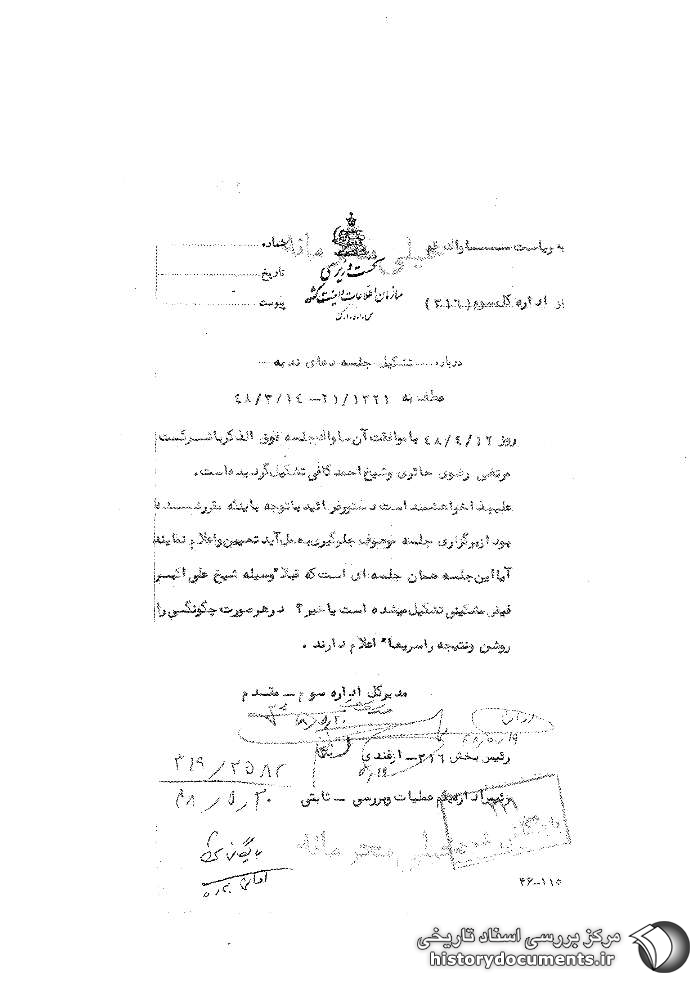 به ریاست ساواك قم
خیلی محرمانه
شماره
نخست وزیری
تاریخ
سازمان اطلاعات و امنیت کشور
از اداره کل سوم (۳۱۶)
پیوست
درباره تشکیل جلسه دعای ندبه
عطف به ۲۱/۱۳۲۱ – ۴۸/۳/۱۴
روز ۴۸/۴/۱۲ با موافقت آن ساواك جلسه فوق الذکر با شرکت
مرتضی رضوی حائری و شیخ احمد کافی تشکیل گردیده است.
علیهذا خواهشمند است دستور فرمائید با توجه باینکه مقرر شده
بود از برگزاری جلسه موصوف جلوگیری بعمل آید تعیین و اعلام نمایند
آیا این جلسه همان جلسه ای است که قبلا" وسیله شیخ علی اکبر
فیض مشکینی تشکیل میشده است یا خیر؟ در هر صورت چگونگی را
روشن و نتیجه را سریعا" اعلام دارند.
مدیرکل اداره سوم – مقدم
۴۸/۵/۱۹
رئیس بخش ۳۱۶ – ازغندی
۵/۱۹
۳۱۶/۲۵۸۲
رئیس اداره یکم عملیات و بررسی – ثابتی
۴۸/۵/۲۰
خیلی محرمانه
بایگانی
۴۶–۱۱۵
مرکز بررسی اسناد تاریخی
historydocuments.ir